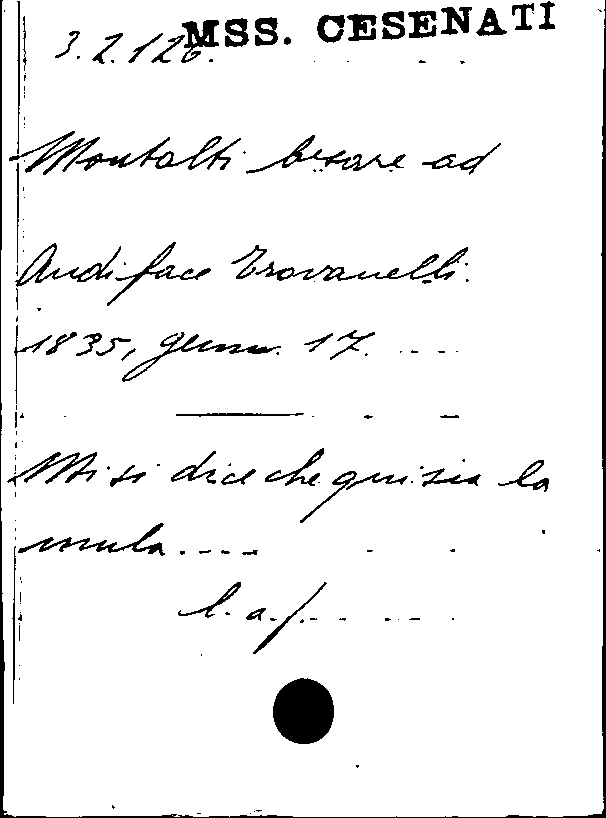 MSS. CESENATI
3.2.126.
Montalti Cesare ad
Audiface Trovanelli.
1835, genn. 17.
Mi si dice che qui sia la
mula....
l. a. f.